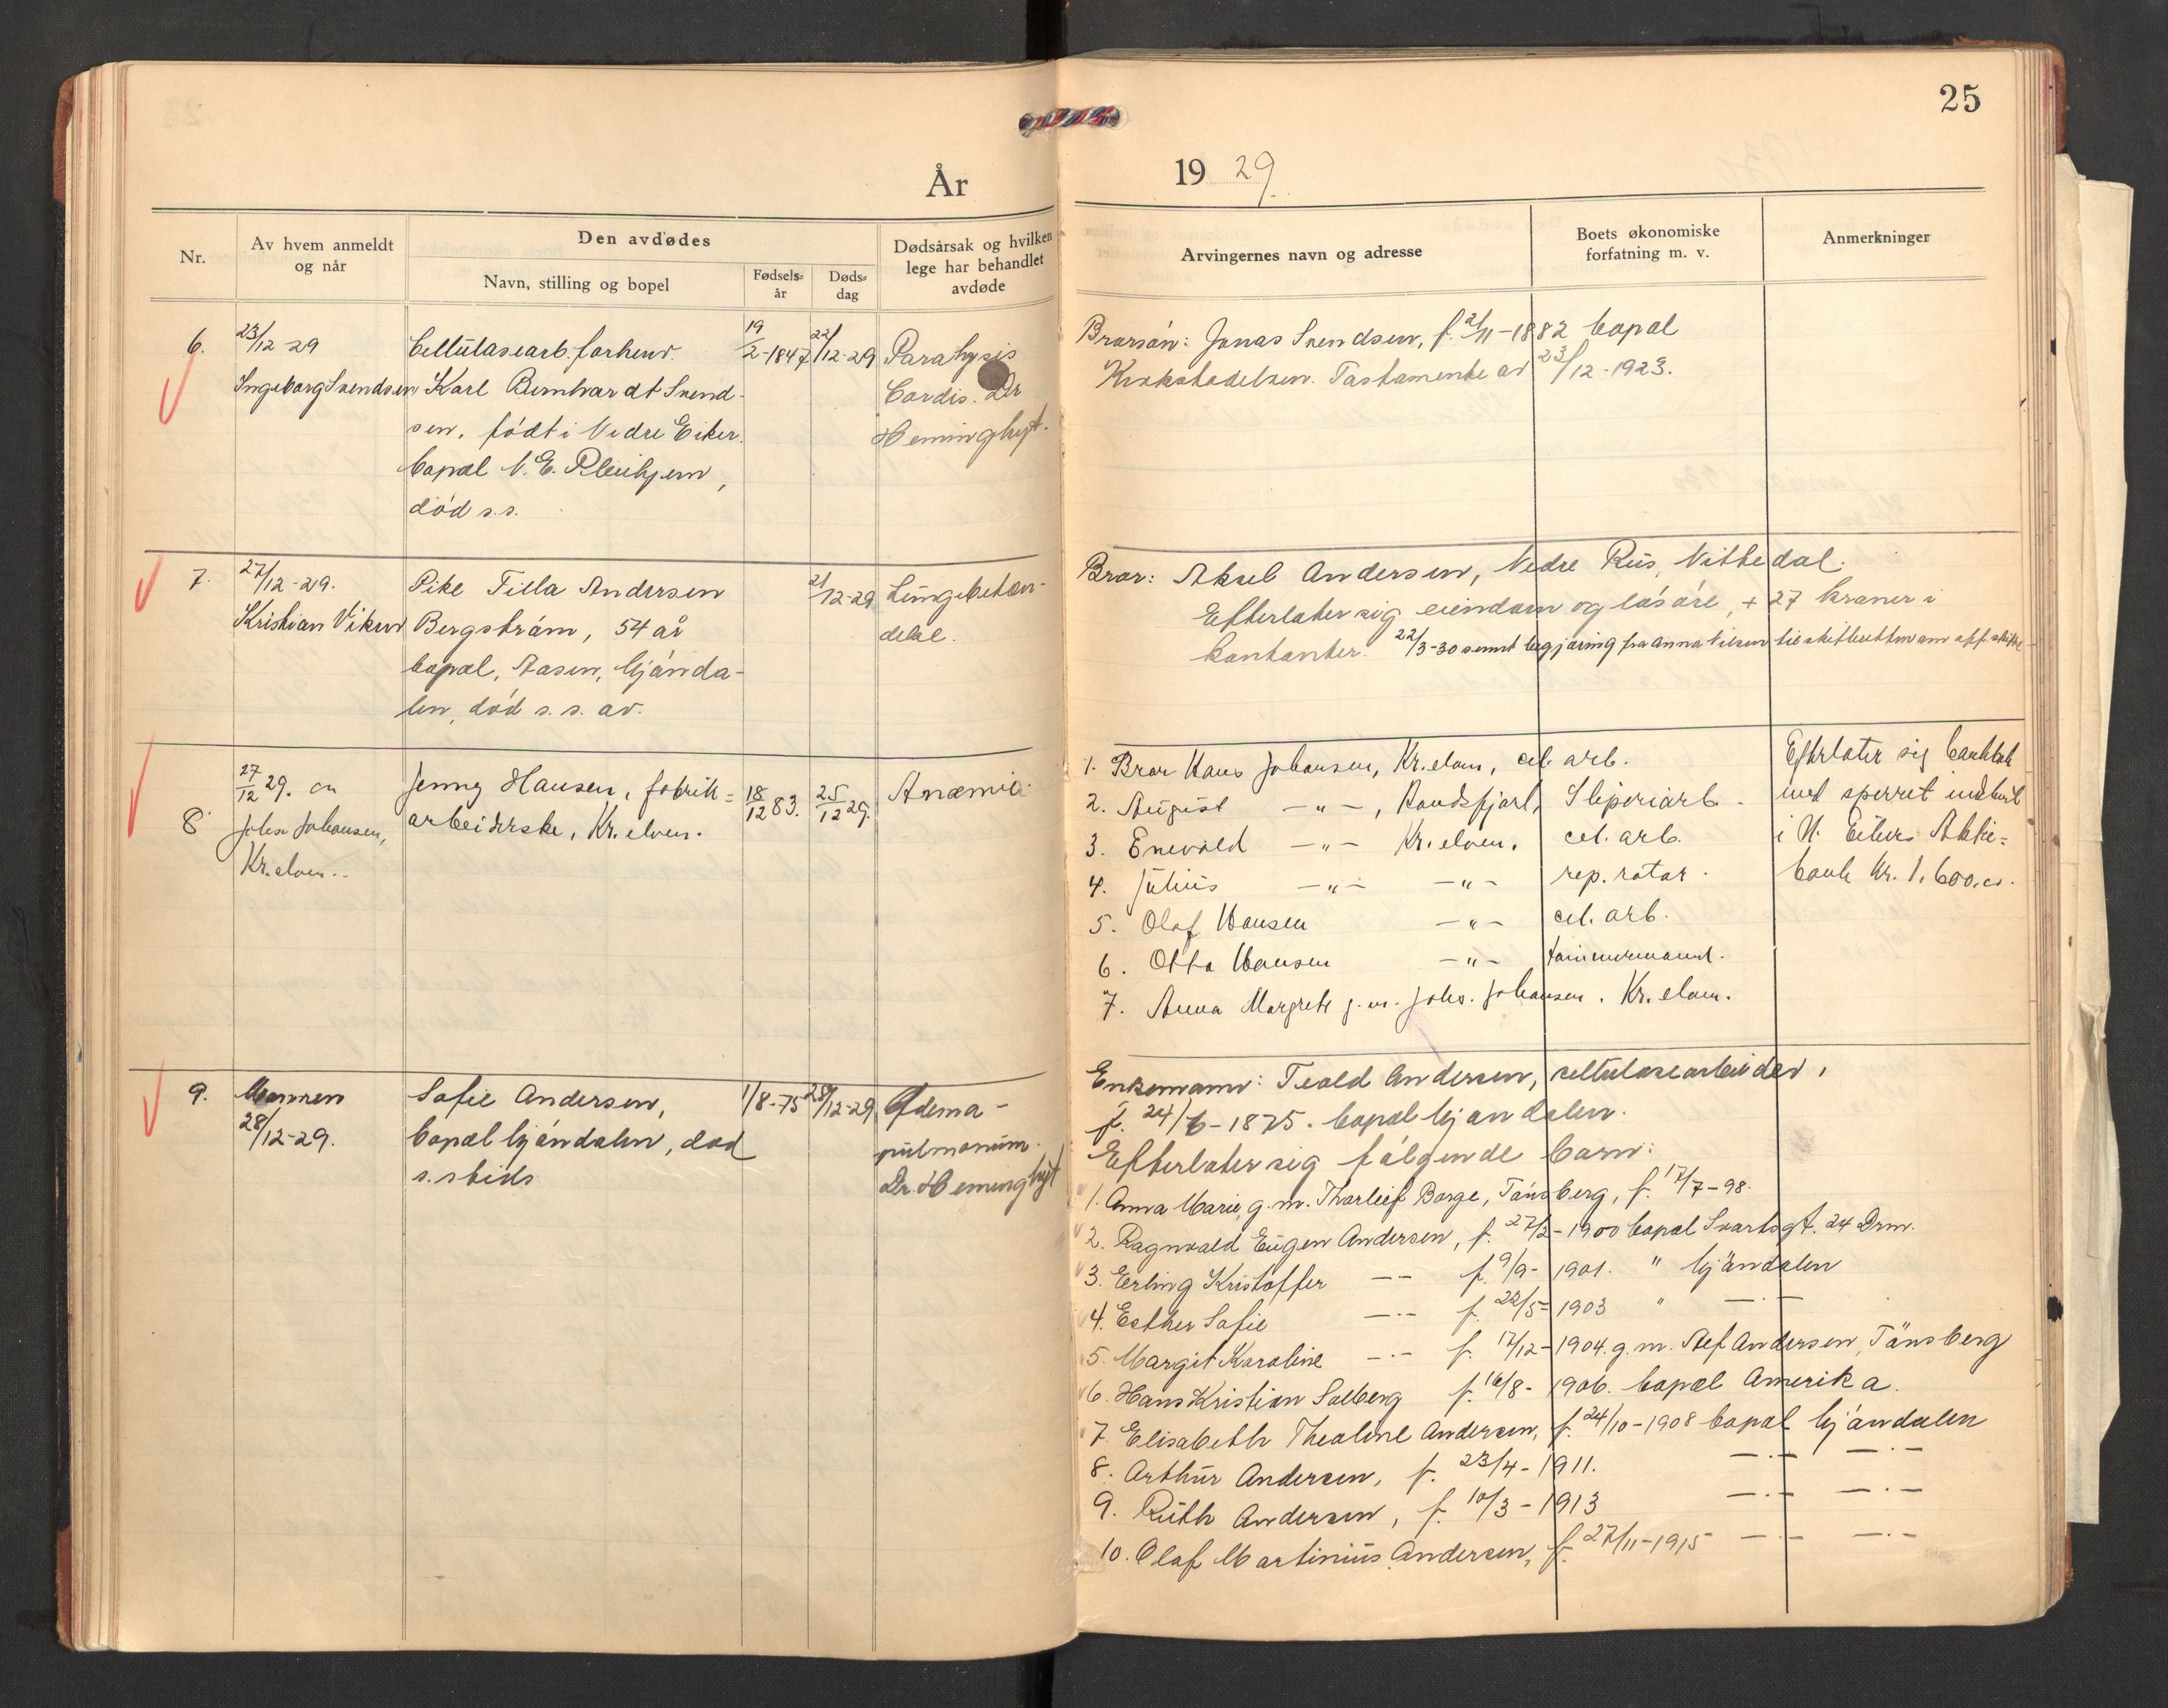 25
År 1929.
Nr.
Av hvem anmeldt og når
Den avdødes
Navn, stilling og bopel
Fødselsår
Dødsdag
Dødsårsak og hvilken lege har behandlet avdøde
Arvingernes navn og adresse
Boets økonomiske forfatning m. v.
Anmerkninger
6.
23/12-29
Ingeborg Svendsen
Cellulosearb. forhenv.
Karl Bernhardt Svend-
sen, født i Nedre Eiker.
bopæl N. E. Pleiehjem,
død s.s.
19/2-1847
22/12-29
Paralysis
Cordis. Dr
Heminghyt.
Brorsøn: Jonas Svendsen, f. 2/11-1882 bopæl
Krokstadelven. Testamente av 23/12-1923.
7.
27/12-29.
Kristian Viken
Pike Tilla Andersen
Bergstrøm, 54 år
bopæl, Aasen, Mjønda-
len, død s. s. av.
21/12-29
Lungebeten-
delse.
Bror: Aksel Andersen, Nedre Rus, Nittedal.
Efterlater sig eiendom og løsøre, + 27 kroner i
kontanter. 22/3-30 sendt begjæring fra Anna Nilsen til skifteretten om off. skifte
8
27/12 29. av
Johs Johansen,
Kr.elven..
Jenny Hansen, fabrik=
arbeiderske, Kr. elven.
18/12 83.
25/12 29.
Anæmie.
1. Bror Hans Johansen, Kr.elven, cel. arb.
2. August —„—, Randsfjord, Sliperiarb.
3. Enevald —„— Kr. elven, cel. arb.
4. Julius —„— —„— rep. ratør.
5. Olaf Hansen —„— cel. arb.
6. Otto Hansen —„— tømmermand.
7. Anna Margrete g. m. Johs. Johansen. Kr. elven.
Efterlater sig bankbok
med sperret indskud
i N. Eikers Aktie=
bank kr. 1.600,00.
9.
Mannen
28/12-29.
Sofie Andersen,
bopæl Mjøndalen, død
s. steds
1/8-75
28/12-29
Ødema-
pulmonum.
Dr. Heminghyt
Enkemann: Teold Andersen, cellulosearbeider,
f. 24/6-1875. bopæl Mjøndalen.
Efterlater sig følgende barn:
1. Anna Marie, g. m. Thorleif Borge, Tønsberg, f. 17/7-98.
2. Ragnvald Eugen Andersen, f. 27/2-1900 bopæl Svartsgt. 24 Drm.
3. Erling Kristoffer —— f. 9/9-1901. " Mjøndalen
4. Esther Sofie —·— f. 22/5-1903 " —·—
5. Margit Karoline —·— f. 17/12-1904. g. m. Alf Andersen, Tønsberg
6. Hans Kristian Solberg f. 16/8-1906. bopæl Amerika.
7. Elisabeth Theoline Andersen, f. 24/10-1908 bopæl Mjøndalen
8. Arthur Andersen, f. 23/4-1911. —·— —·—
9. Ruth Andersen, f. 10/3-1913 —·— —·—
10. Olaf Martinius Andersen, f. 27/11-1915 —·— —·—